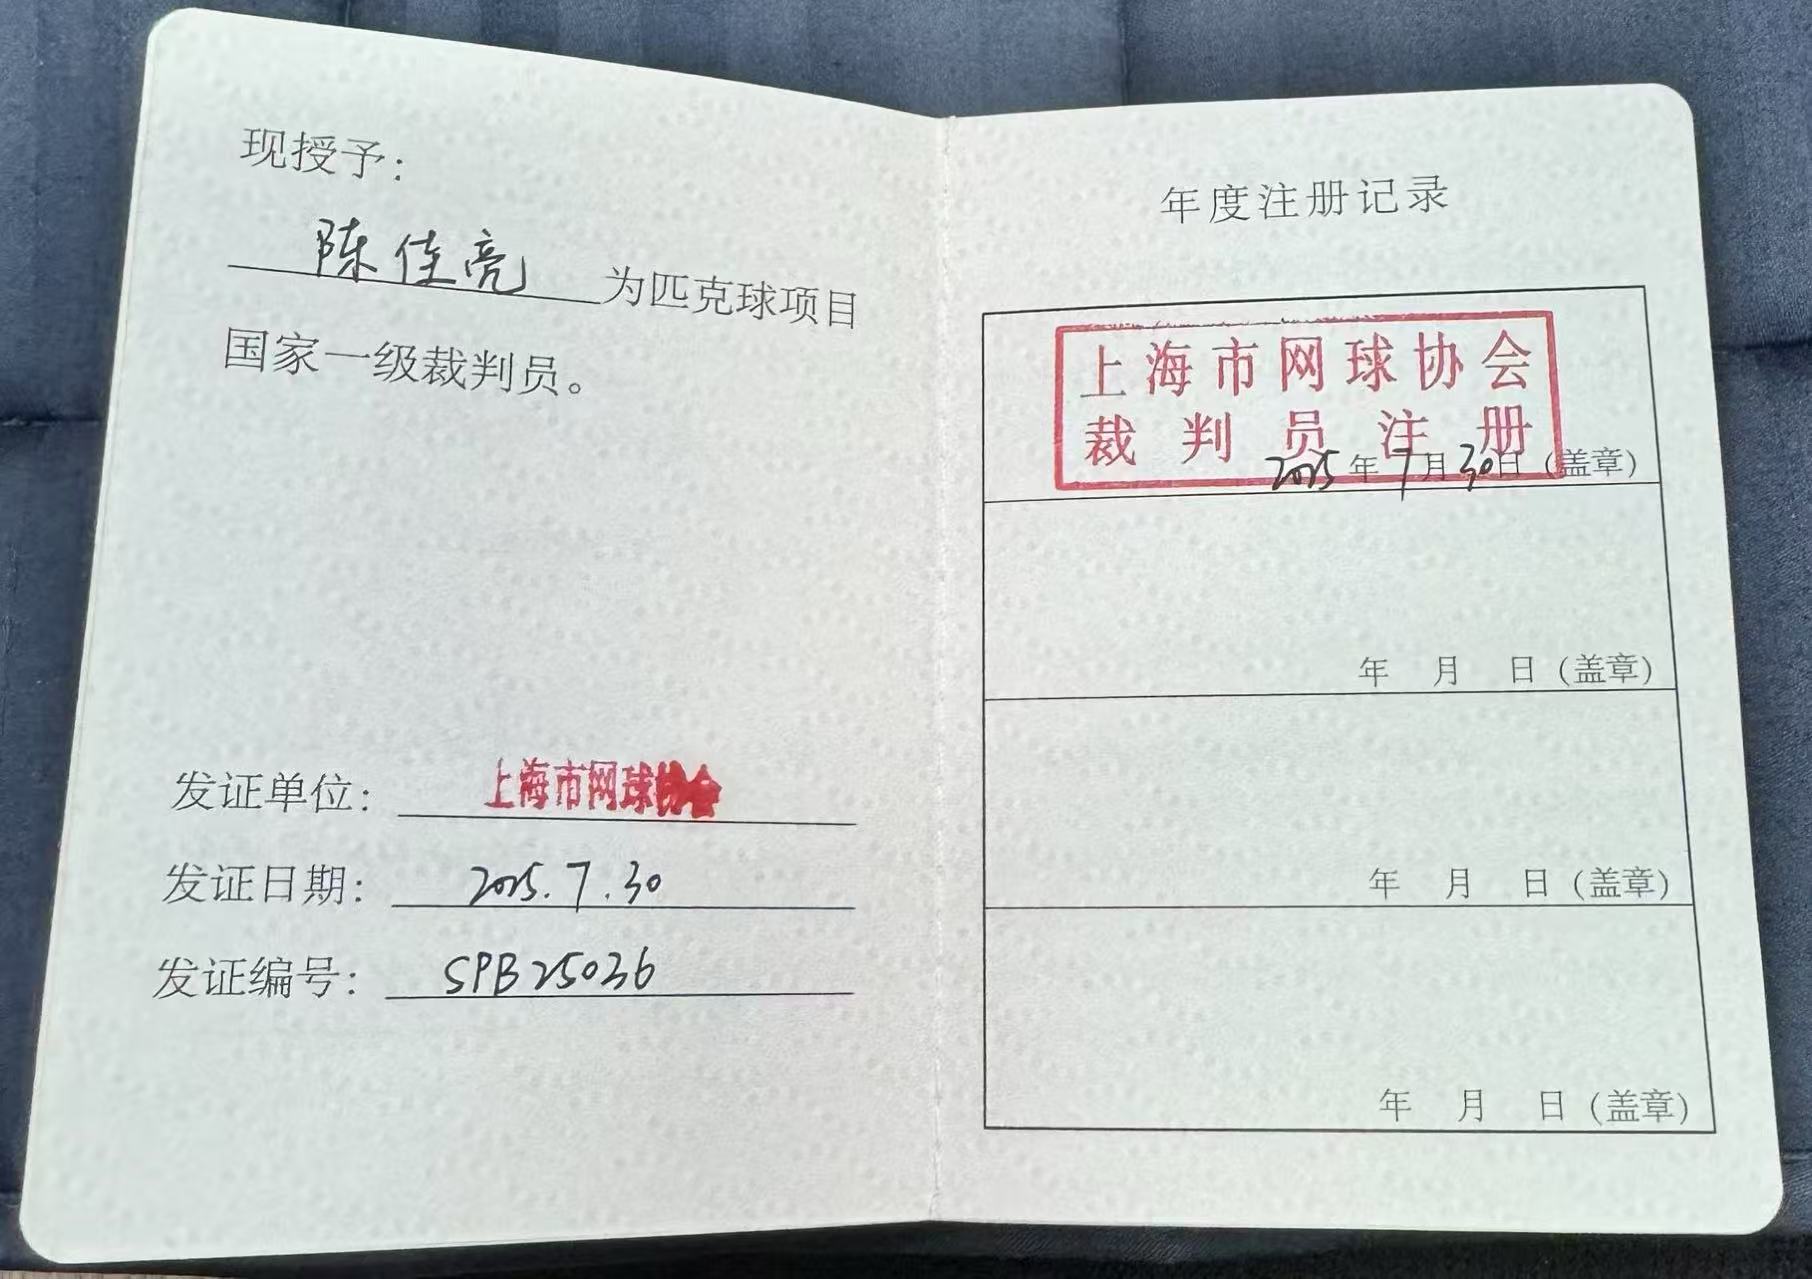 现授予：
陈佳亮为匹克球项目
国家一级裁判员。
发证单位：上海市网球协会
发证日期：2025.7.30
发证编号：SPB25036
年度注册记录
上海市网球协会
裁判员注册
2025年7月30日（盖章）
年 月 日（盖章）
年 月 日（盖章）
年 月 日（盖章）